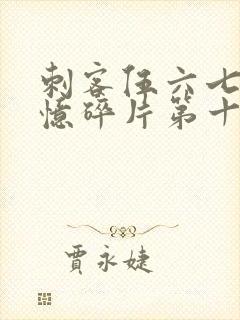 刺客伍六七
憶碎片第十
賈永婕